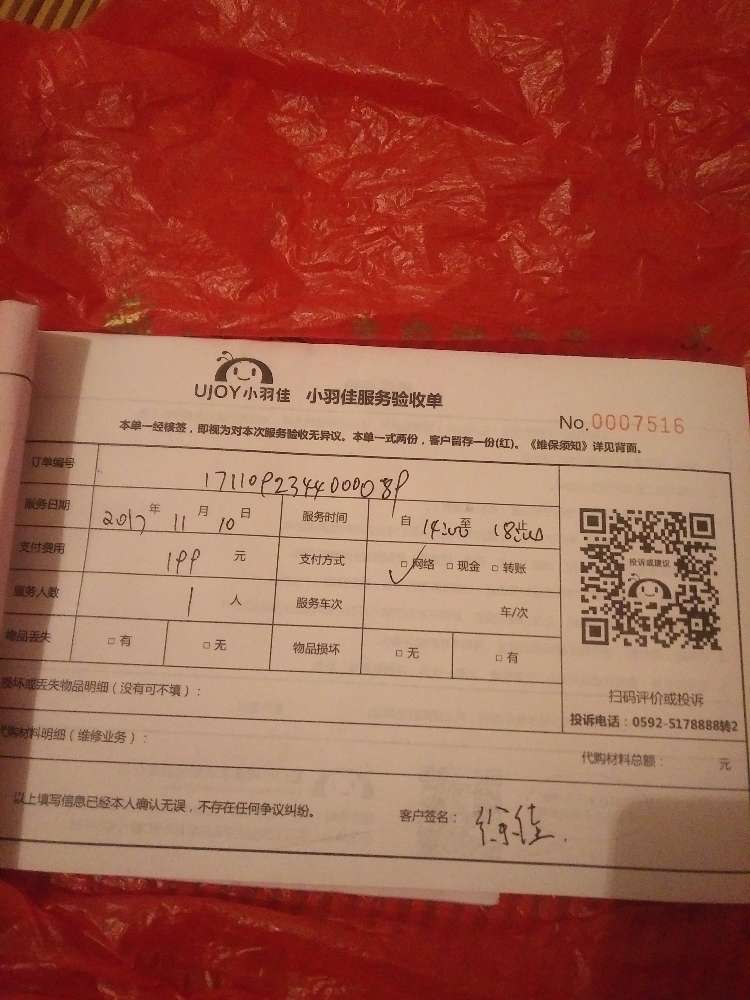 UJOY小羽佳 小羽佳服务验收单
No.0007516
本单一经核签，即视为对本次服务验收无异议。本单一式两份，客户留存一份(红)。《维保须知》详见背面。
订单编号 1711092344000089
服务日期 2017年11月10日 服务时间 自14:00至18:00止
支付费用 199元 支付方式 □网络 □现金 □转账
服务人数 1人 服务车次 车/次
物品丢失 □有 □无 物品损坏 □无 □有
投诉或建议
扫码评价或投诉
投诉电话：0592-5178888转2
损坏或丢失物品明细（没有可不填）：
代购材料明细（维修业务）： 代购材料总额： 元
以上填写信息已经本人确认无误，不存在任何争议纠纷。 客户签名：徐佳